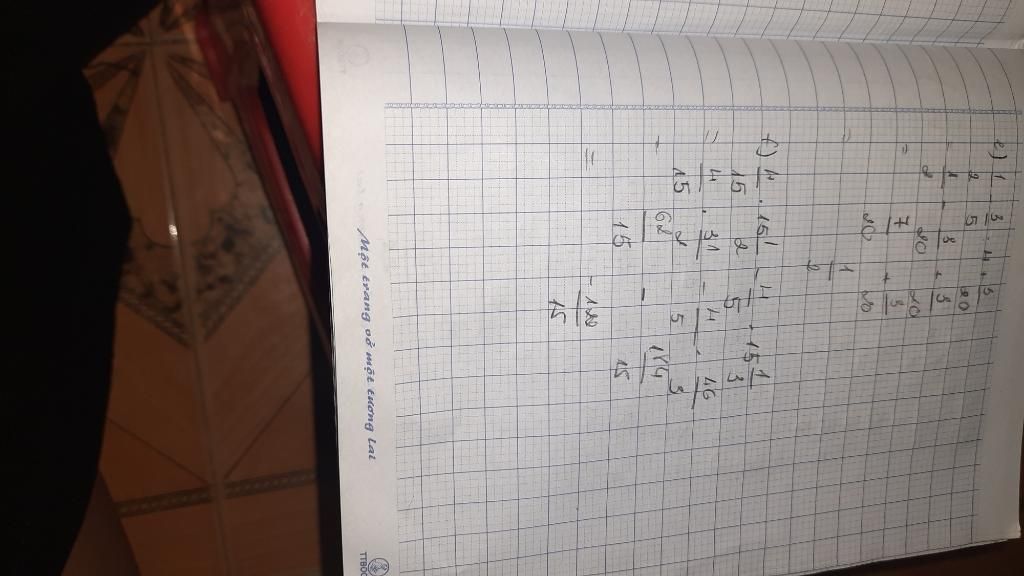 e) 1/2 - 3/5 . 1/4 + 3/20
= 1/2 - 3/20 + 3/20
= 7/20 + 3/20
= 1/2
f) 4/15 . 15 1/2 - 4/5 . 15 1/3
= 4/15 . 31/2 - 4/5 . 46/3
= 62/15 - 184/15
=
Một trang vở một tương lai